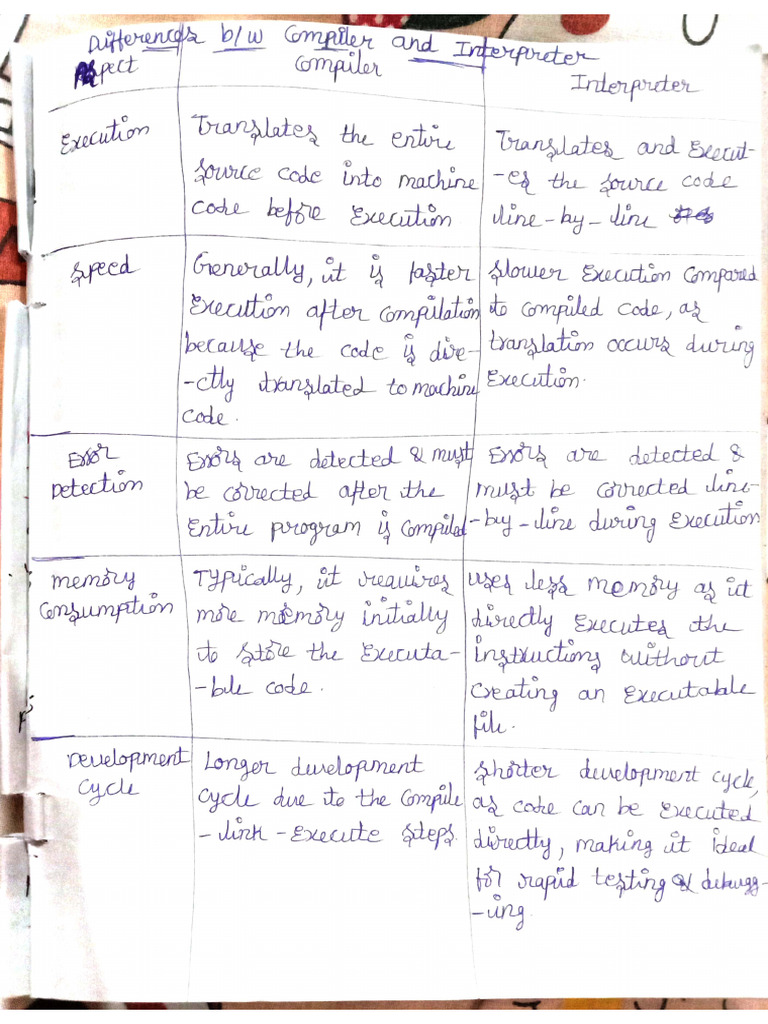 Differences b/w Compiler and Interpreter
Aspect
Compiler
Interpreter
Execution
Translates the entire
source code into machine
code before Execution
Translates and Execut-
-es the source code
line-by-line
Speed
Generally, it is faster
Execution after compilation
because the code is dire-
-ctly translated to machine
code.
Slower Execution Compared
to compiled code, as
translation occurs during
Execution.
Error
Detection
Errors are detected & must
be corrected after the
Entire program is Compiled
Errors are detected &
must be corrected line-
-by-line during Execution
Memory
Consumption
Typically, it requires
more memory initially
to store the Executa-
-ble code.
uses less memory as it
directly Executes the
instructions without
creating an Executable
file.
Development
Cycle
Longer development
cycle due to the Compile
-link-Execute steps.
Shorter development cycle,
as code can be executed
directly, making it ideal
for rapid testing & debugg-
-ing.